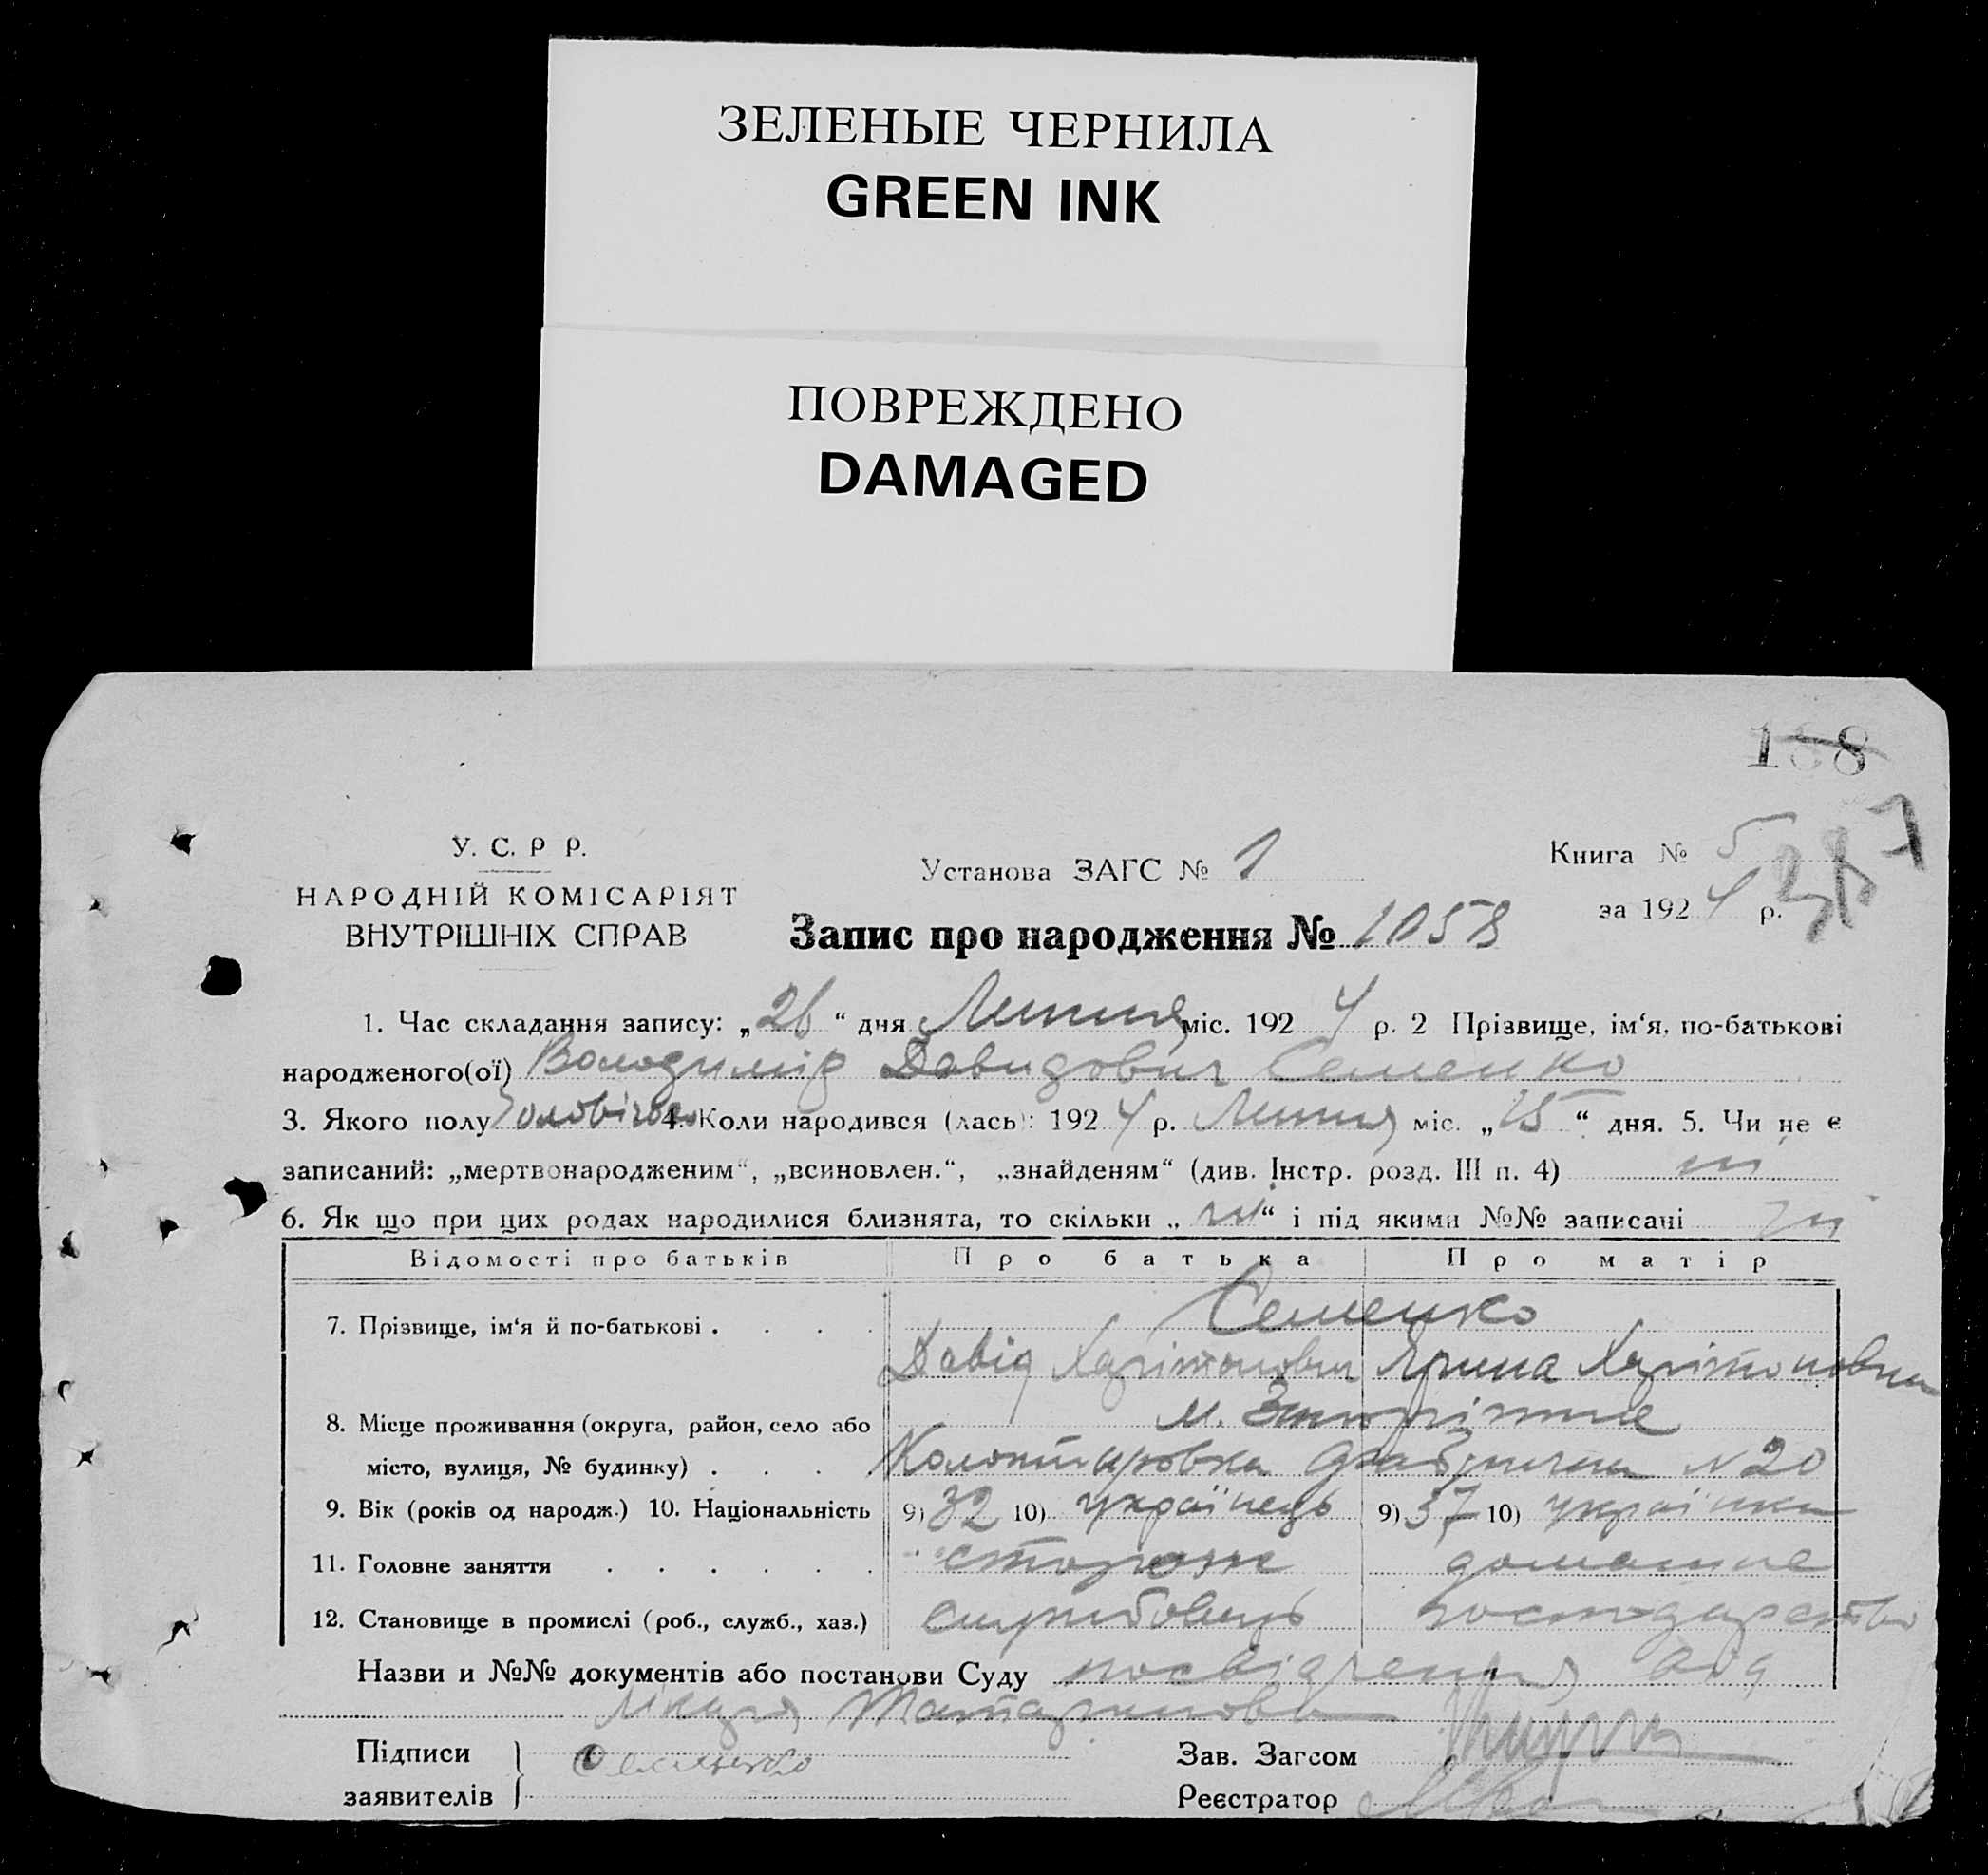 ЗЕЛЕНЫЕ ЧЕРНИЛА
GREEN INK
ПОВРЕЖДЕНО
DAMAGED
188
У. С. Р Р.
НАРОДНІЙ КОМІСАРІЯТ
ВНУТРІШНІХ СПРАВ
Установа ЗАГС № 1
Книга № 5
за 1924 р.
Запис про народження № 1058
1. Час складання запису: „26“ дня Липня міс. 1924 р. 2 Прізвище, ім‘я, по-батькові
народженого(ої) Володимір Давидович Семенко
3. Якого полу Чоловічого 4. Коли народився (лась): 1924 р. Липня міс. „15“ дня. 5. Чи не є
записаний: „мертвонародженим“, „всиновлен.“, „знайденям“ (див. Інстр. розд. III п. 4) ні
6. Як що при цих родах народилися близнята, то скільки „ні“ і під якими №№ записані ні
Відомості про батьків Про батька Про матір
7. Прізвище, ім‘я й по-батькові . . . . Семенко
Давід Харітонович Ярина Харітоновна
8. Місце проживання (округа, район, село або м. Запоріжжє
місто, вулиця, № будинку) . . . № 20
9. Вік (років од народж.) 10. Національність 9) 32 10) українець 9) 37 10) українка
11. Головне заняття . . . . . . сторож домашнє
12. Становище в промислі (роб., служб., хаз.) службовець господарство
Назви и №№ документів або постанови Суду посвідчення
Підписи
заявителів
Семенко
Зав. Загсом
Реєстратор